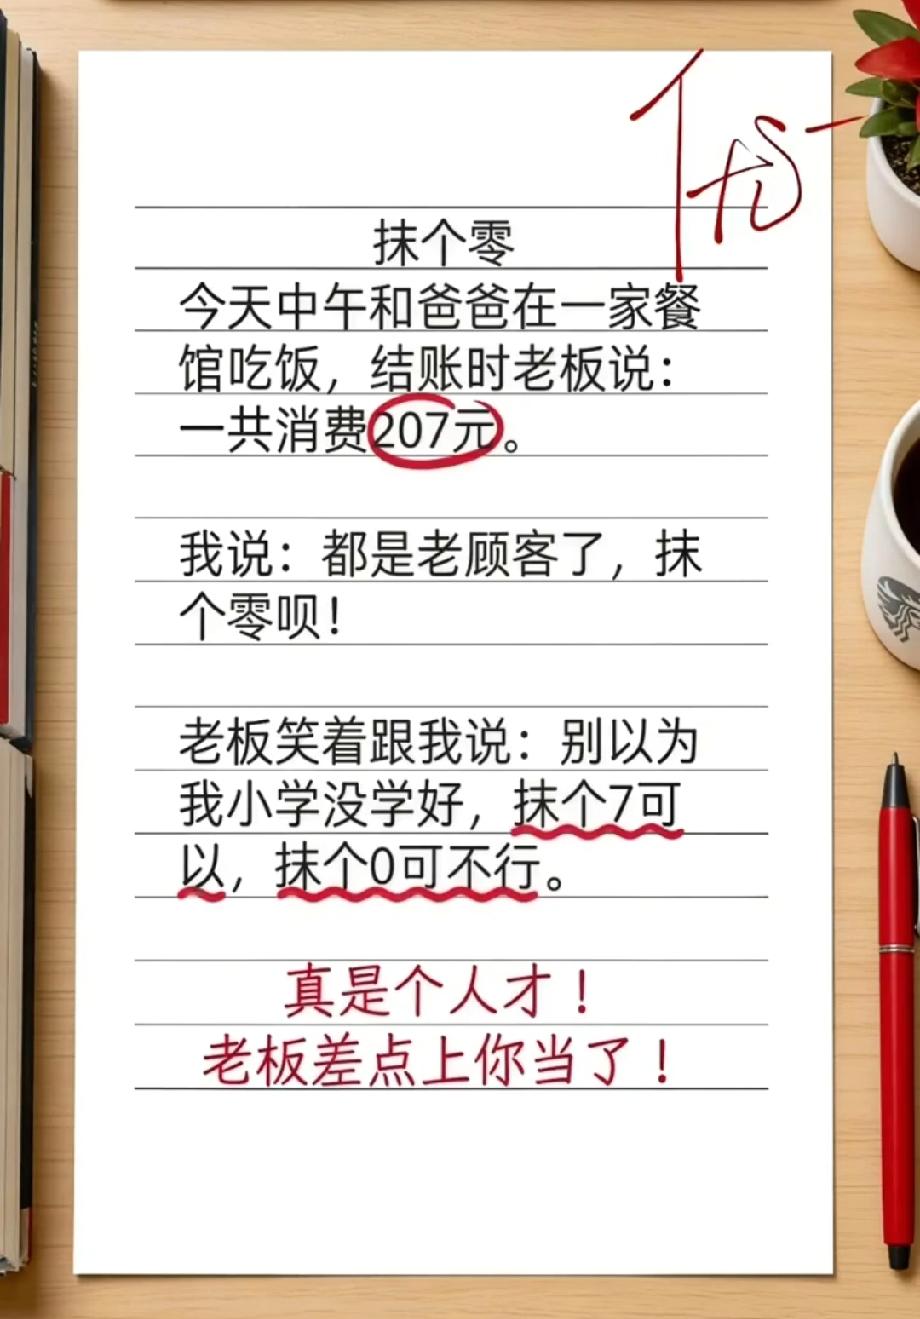 优-
抹个零
今天中午和爸爸在一家餐
馆吃饭，结账时老板说：
一共消费207元。
我说：都是老顾客了，抹
个零呗！
老板笑着跟我说：别以为
我小学没学好，抹个7可
以，抹个0可不行。
真是个人才！
老板差点上你当了！